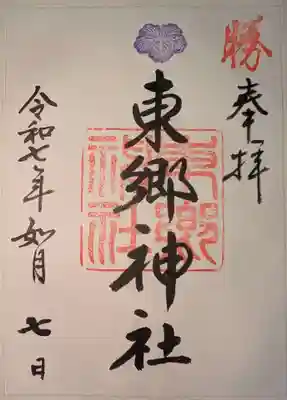 勝
奉拝
東郷神社
東郷神社
令和七年如月七日